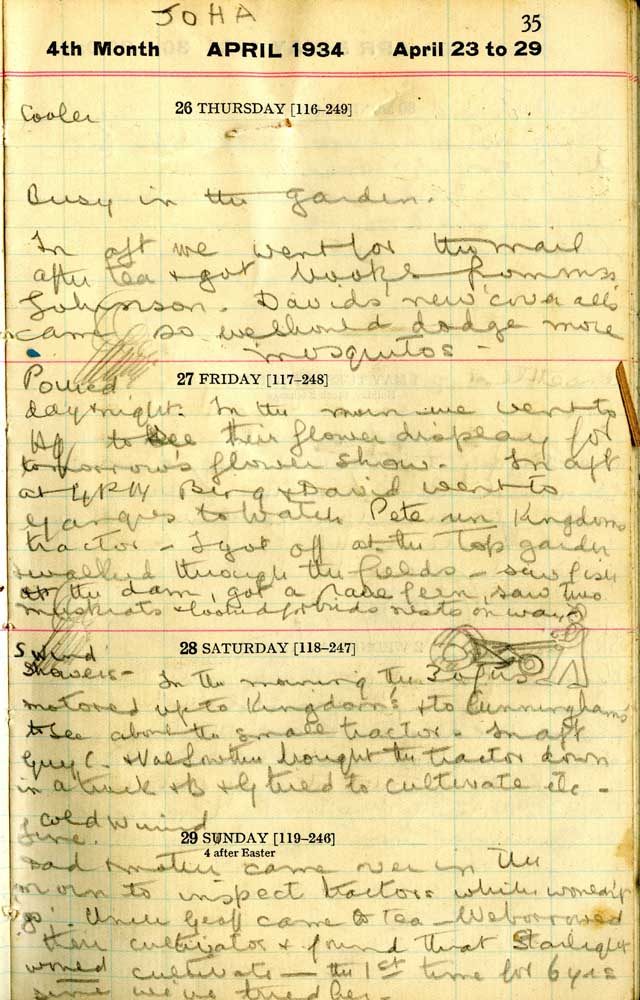 JOHA
35
4th Month APRIL 1934 April 23 to 29
26 THURSDAY [116–249]
Cooler
Busy in the garden.
In aft we went for the mail
after tea & got books from Miss
Johnson. Davids new 'cover alls'
came so we should dodge more
mosquitos -
27 FRIDAY [117–248]
Poured
day & night. In the morn we went to
to see their flower display for
tomorrow's flower show. In aft
at 4 PM Bing & David went to
Ganges to watch Pete run Kingdoms
tractor - I got off at the top garden
& walked through the fields - saw fish
the dam, got a rare fern, saw two
muskrats & looked for birds nests on way -
28 SATURDAY [118–247]
S wind
Showers - In the morning the 3 of us
motored up to Kingdom's & to Cunninghams
to see about the small tractor - In aft
Guy C. & Val Lowther brought the tractor down
in a truck & B & G tried to cultivate etc -
29 SUNDAY [119–246]
4 after Easter
Cold W wind
fine.
Dad & mother came over in the
morn to inspect tractor which wouldn't
'go'. Uncle Geoff came to tea - We borrowed
their cultivator & found that Starlight
would cultivate - the 1st time for 6 yrs
since we've tried her -